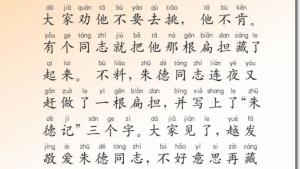 dà jiā quàn tā bú yào qù tiāo tā bù kěn
大家劝他不要去挑，他不肯。
yǒu gè tóng zhì jiù bǎ tā nà gēn biǎn dan cáng le
有个同志就把他那根扁担藏了
qǐ lai bú liào zhū dé tóng zhì lián yè yòu
起来。不料，朱德同志连夜又
gǎn zuò le yì gēn biǎn dan bìng xiě shàng le zhū
赶做了一根扁担，并写上了“朱
dé jì sān gè zì dà jiā jiàn le yuè fā
德记”三个字。大家见了，越发
jìng ài zhū dé tóng zhì bù hǎo yì si zài cáng
敬爱朱德同志，不好意思再藏